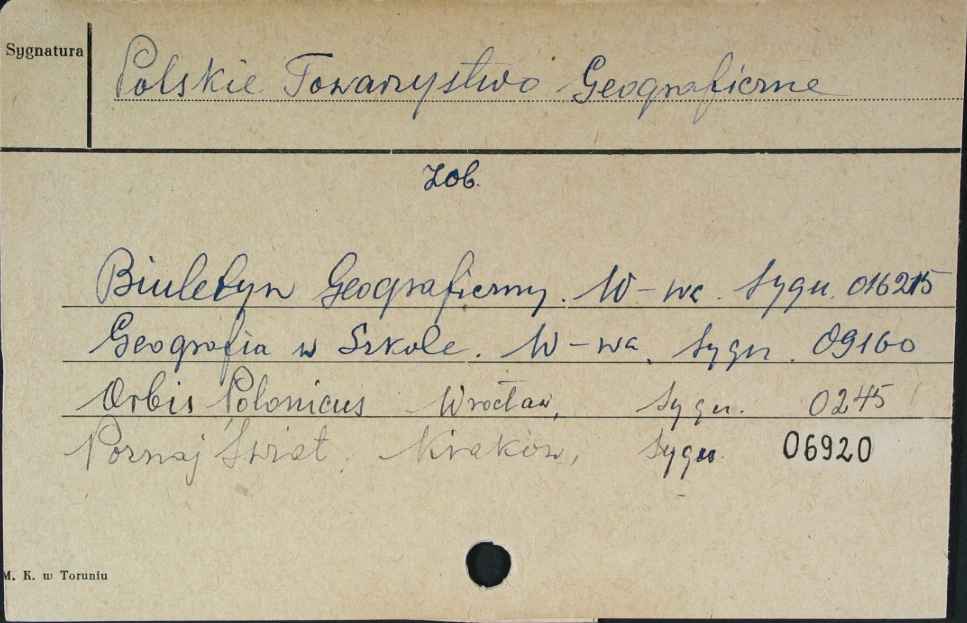 Sygnatura
Polskie Towarzystwo Geograficzne
Zob.
Biuletyn Geograficzny. W-wa. Sygn. 016215
Geografia w Szkole. W-wa. Sygn. 09160
Orbis Polonicus Wrocław, Sygn. 0245
Poznaj Świat. Kraków, Sygn. 06920
M. K. w Toruniu